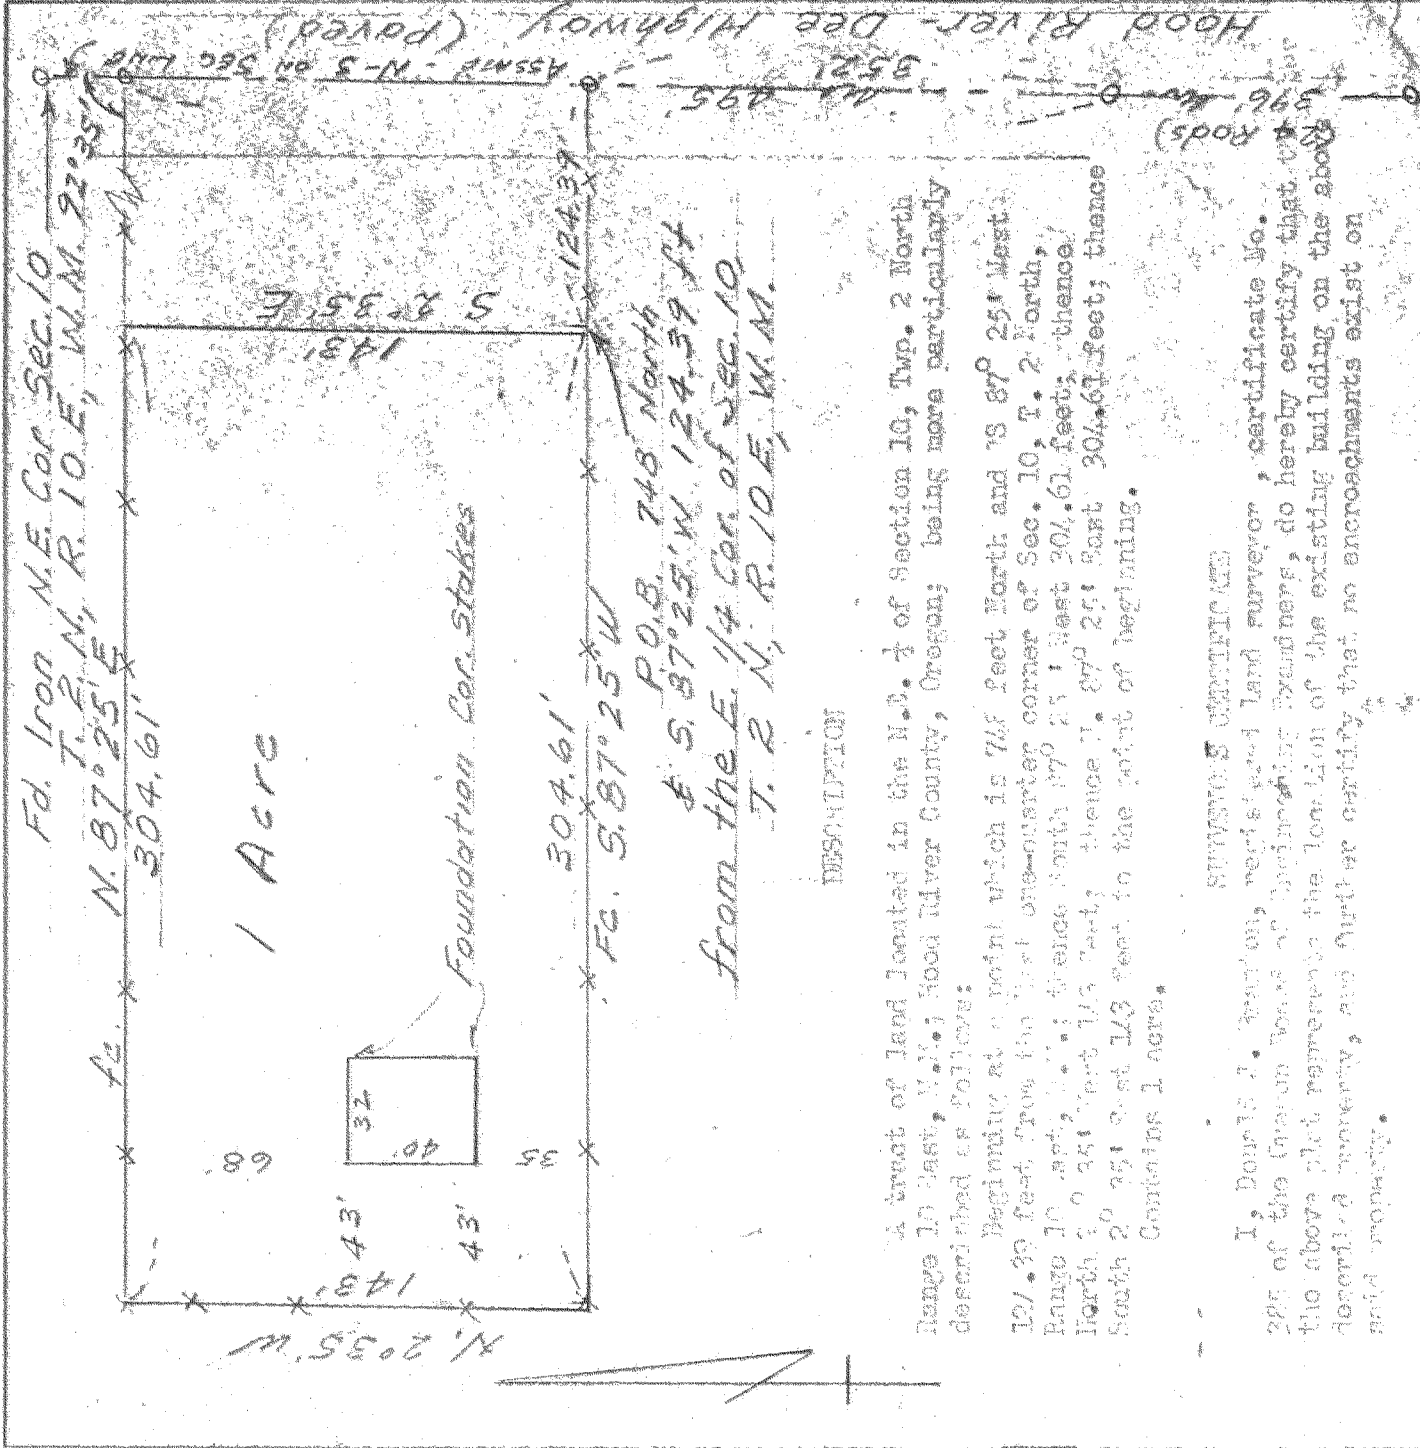 Fd. Iron N.E. Cor Sec. 10
T. 2 N., R. 10 E., W.M. 92°35'
N. 87°25' E
304.61'
fc.
1 Acre
Foundation Cor. Stakes
32
40'
68'
35
43'
43'
143'
N. 2°35' W
S 2°35' E
143'
124.39'
304.61'
Fc. S. 87°25' W
P.O.B. 748 North
& S. 87°25' W 124.39 ft
from the E. 1/4 Cor. of Sec. 10,
T. 2 N., R. 10 E. W.M.
Hood River - Dee Highway (Paved)
Assmd - N-S on Sec Line
352'
495'
396'
(24 Rods)
DESCRIPTION
A tract of land located in the N.E. ¼ of Section 10, Twp. 2 North
Range 10 East, W.M.; Hood River County, Oregon; being more particularly
described as follows:
Beginning at a point which is 748 feet North and S 87° 25' West
124.39 feet from the East one-quarter corner of Sec. 10, T. 2 North,
Range 10 East, W.M.; thence South 87° 25' West 304.61 feet; thence
North 2° 35' West 143 feet; thence N. 87° 25' East 304.61 feet; thence
South 2° 35' East 143 feet to the point of beginning.
Contains 1 acre.
SURVEYOR'S CERTIFICATE
I, Donald, registered land surveyor, certificate No.
of the Oregon Board of Engineering Examiners, do hereby certify that
the above plat represents the location of the existing building on the above
described property, and further certify that no encroachments exist on
said property.